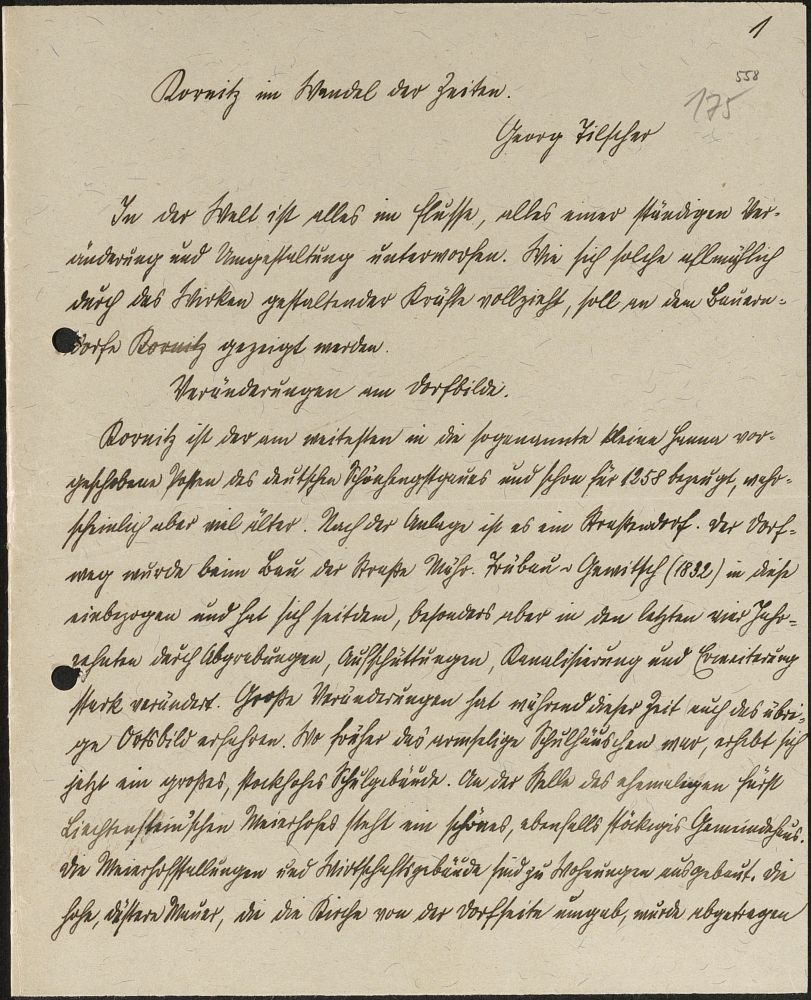 1
558
175
Kornitz im Wandel der Zeiten.
Georg Tilscher
In der Welt ist alles im Flusse, alles einer ständigen Ver-
änderung und Umgestaltung unterworfen. Wie sich solche allmählich
durch das Wirken gestaltender Kräfte vollzieht, soll an dem Bauern-
dorfe Kornitz gezeigt werden.
Veränderungen am Dorfbilde.
Kornitz ist der am weitesten in die sogenannte kleine Hanna vor-
geschobene Posten des deutschen Schönhengstgaues und schon für 1258 bezeugt, wahr-
scheinlich aber viel älter. Nach der Anlage ist es ein Straßendorf. Der Dorf-
weg wurde beim Bau der Straße Mähr. Trübau - Gewitsch (1832) in diese
einbezogen und hat sich seitdem, besonders aber in den letzten vier Jahr-
zehnten durch Abgrabungen, Aufschüttungen, Kanalisierung und Erweiterung
stark verändert. Große Veränderungen hat während dieser Zeit auch das übri-
ge Ortsbild erfahren. Wo früher das armselige Schulhäuschen war, erhebt sich
jetzt ein großes, stockhohes Schulgebäude. An der Stelle des ehemaligen fürst
Liechtenstein'schen Meierhofes steht ein schönes, ebenfalls stöckiges Gemeindehaus.
Die Meierhofstallungen und Wirtschaftsgebäude sind zu Wohnungen ausgebaut. Die
hohe, düstere Mauer, die die Kirche von der Dorfseite umgab, wurde abgetragen